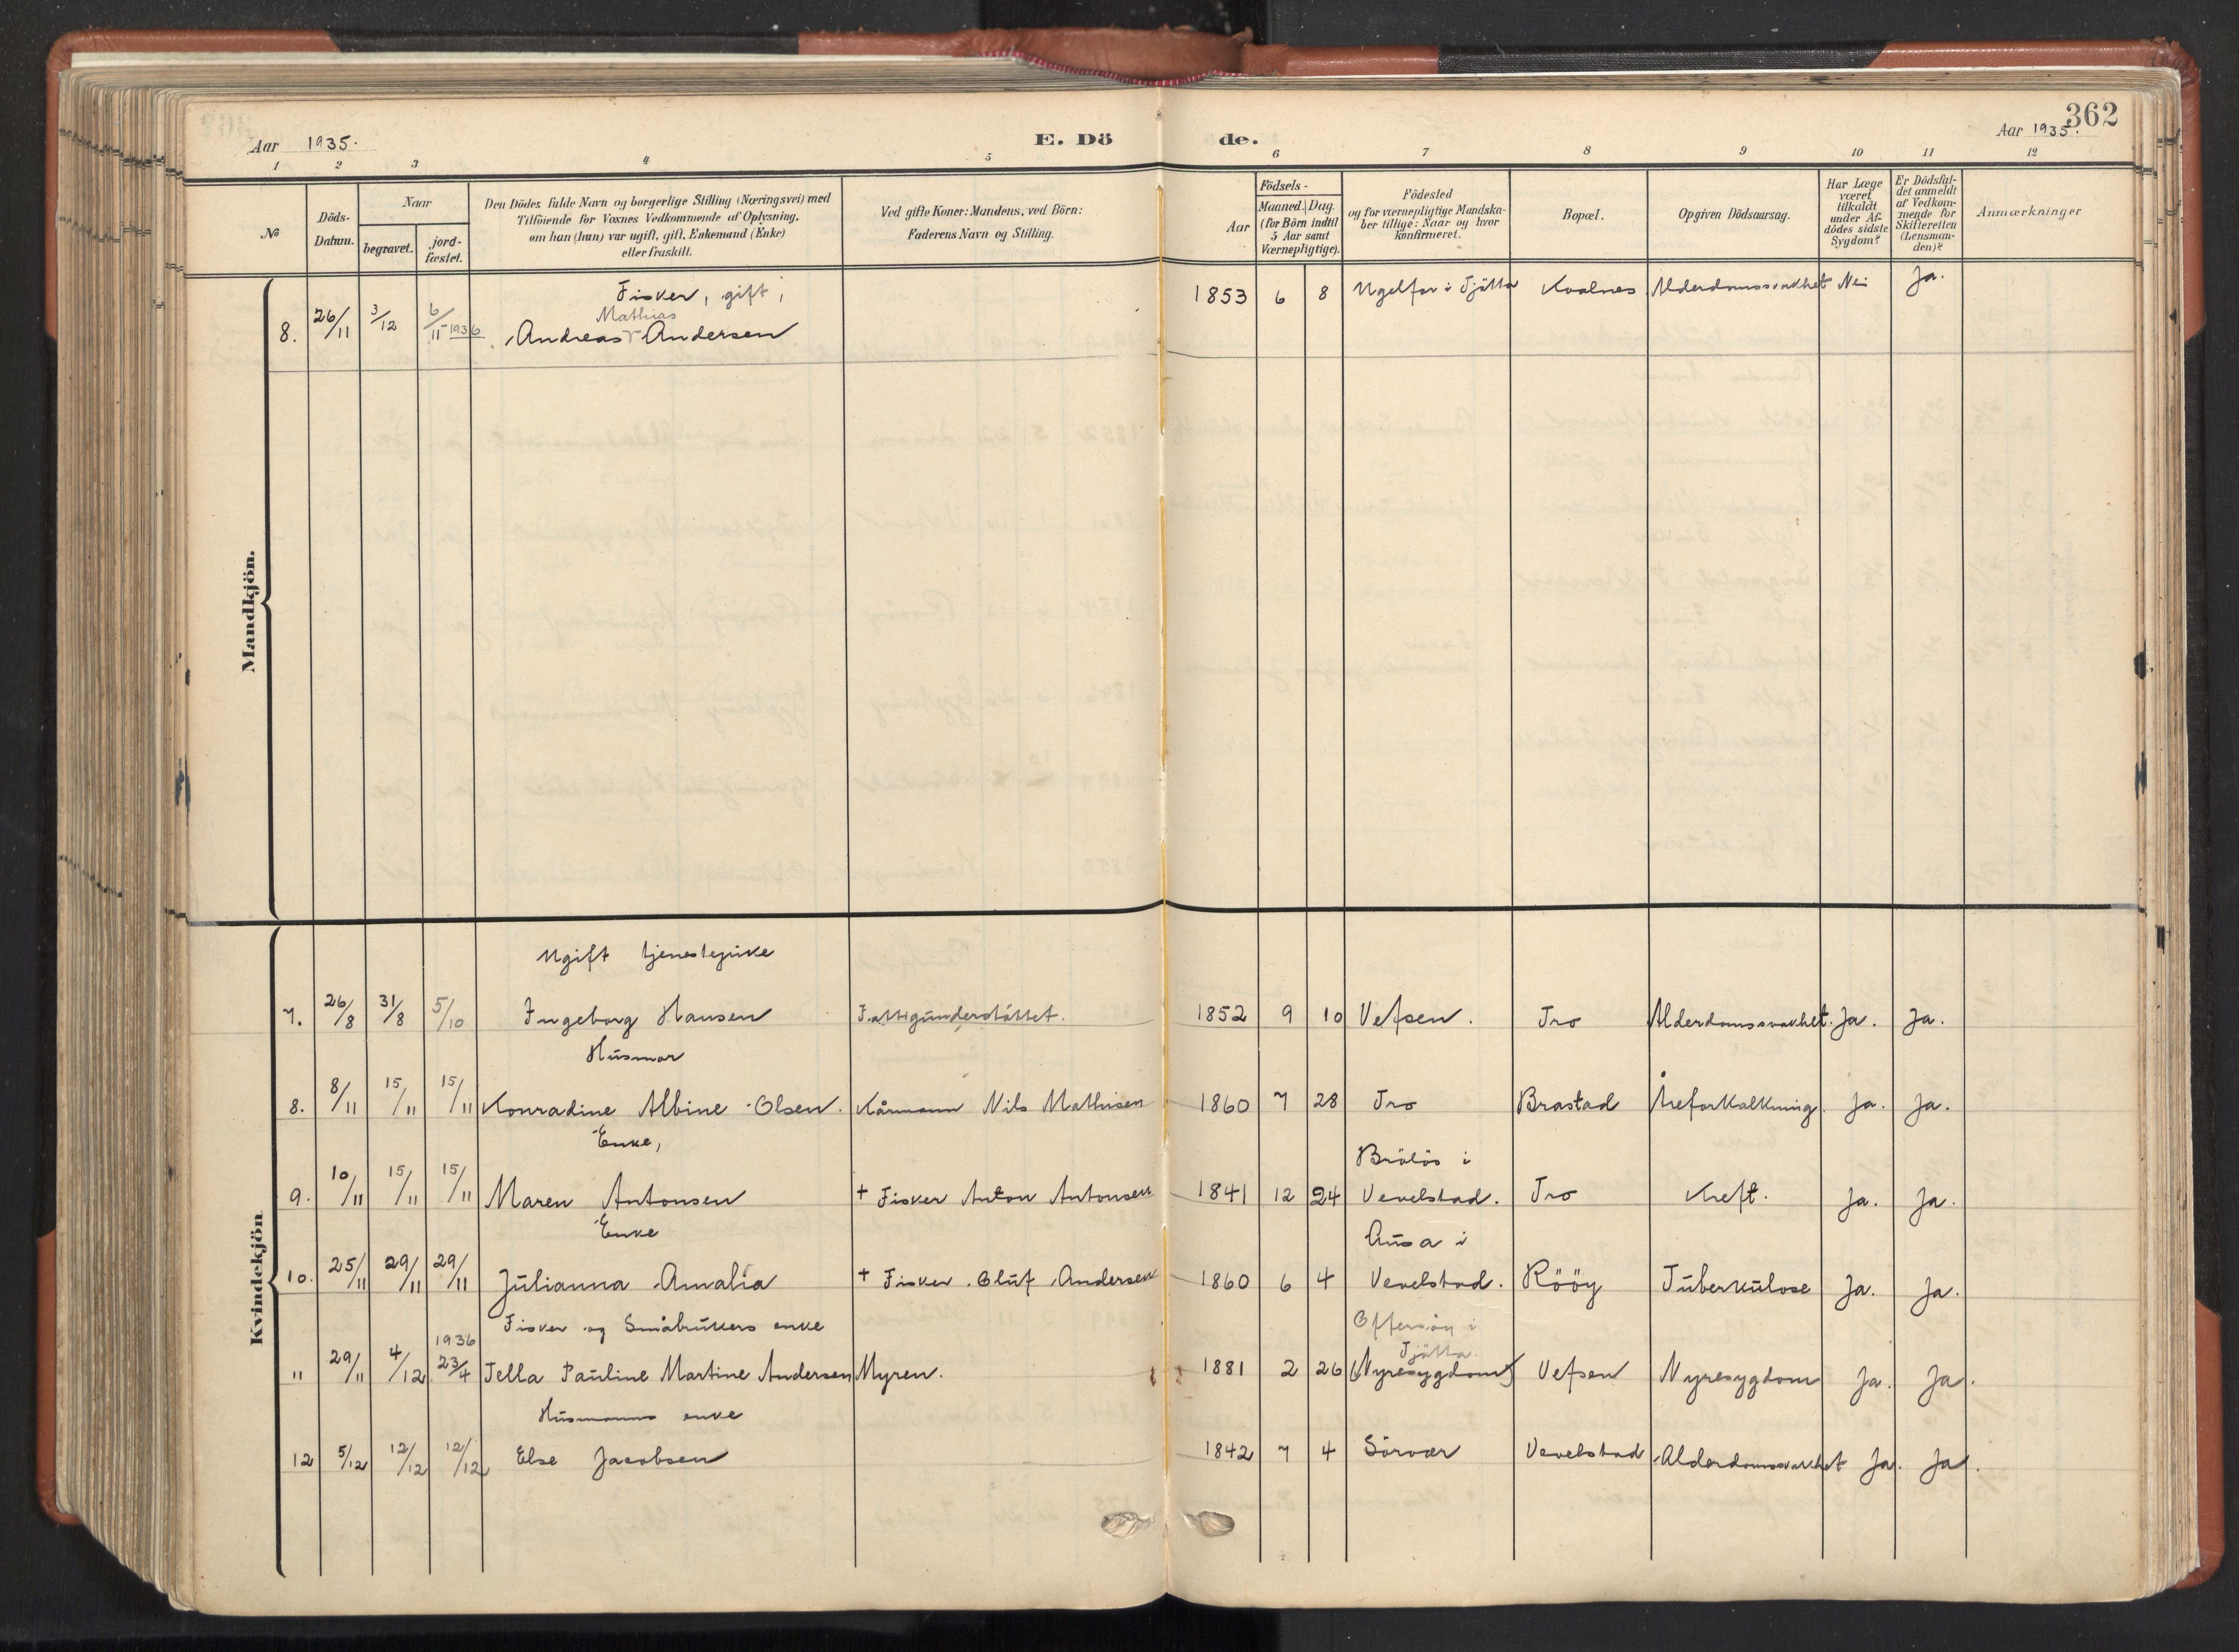 362
Aar 1935.
E. Dö de.
Aar 1935.
1 2 3 4 5 6 7 8 9 10 11 12
№
Döds-
Datum.
Naar
begravet.
jord-
fæstet.
Den Dödes fulde Navn og borgerlige Stilling (Næringsvei) med
Tilföiende for Voxnes Vedkommende af Oplysning,
om han (hun) var ugift, gift, Enkemand (Enke)
eller fraskilt.
Ved gifte Koner: Mandens, ved Börn:
Faderens Navn og Stilling.
Födsels-
Aar
Maaned. Dag.
(for Börn indtil
5 Aar samt
Værnepligtige).
Födested
og for værnepligtige Mandska-
ber tillige: Naar og hvor
konfirmeret.
Bopæl.
Opgiven Dödsaarsag.
Har Læge
været
tilkaldt
under Af-
dödes sidste
Sygdom?
Er Dödsfal-
det anmeldt
af Vedkom-
mende for
Skifteretten
(Lensman-
den)?
Anmærkninger
Mandkjön.
Fisker, gift,
Mathias
8. 26/11 3/12 6/11-1936 Andreas Andersen 1853 6 8 Ugelfar i Tjötta Kvalnes Alderdomssvakhet Nei Ja.
Kvindekjön
Ugift tjenestepike
7. 26/8 31/8 5/10 Ingeborg Hansen Fattigunderstöttet. 1852 9 10 Vefsen. Tro Alderdomssvakhet. Ja. Ja.
Husmor
8. 8/11 15/11 15/11 Konradine Albine Olsen. Kårmann Nils Mathisen 1860 7 28 Tro Brastad Åreforkalkning. Ja. Ja.
Enke, Brölös i
9. 10/11 15/11 15/11 Maren Antonsen + Fisker Anton Antonsen 1841 12 24 Vevelstad. Tro Kreft. Ja. Ja.
Enke Ausa i
10. 25/11 29/11 29/11 Julianna Amalia + Fisker Oluf Andersen 1860 6 4 Vevelstad. Rööy Tuberkulose Ja. Ja.
Fisker og Småbrukers enke Offersöy i
1936 Tjötta.
11 29/11 4/12 23/4 Tella Pauline Martine Andersen Myren. 1881 2 26 (Nyresygdom) Vefsen Nyresygdom Ja. Ja.
Husmanns enke
12 5/12 12/12 12/12 Else Jacobsen 1842 7 4 Sörvær Vevelstad Alderdomssvakhet Ja. Ja.